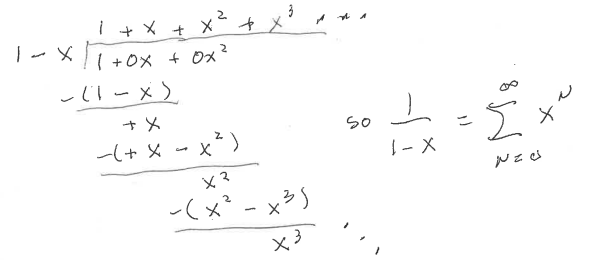 1 + x + x² + x³ ...
1 - x 1 + 0x + 0x²
-(1 - x)
+ x
-(+ x - x²)
x²
-(x² - x³)
x³ ...
so 1/(1-x) = ∑_{N=0}^{∞} x^N